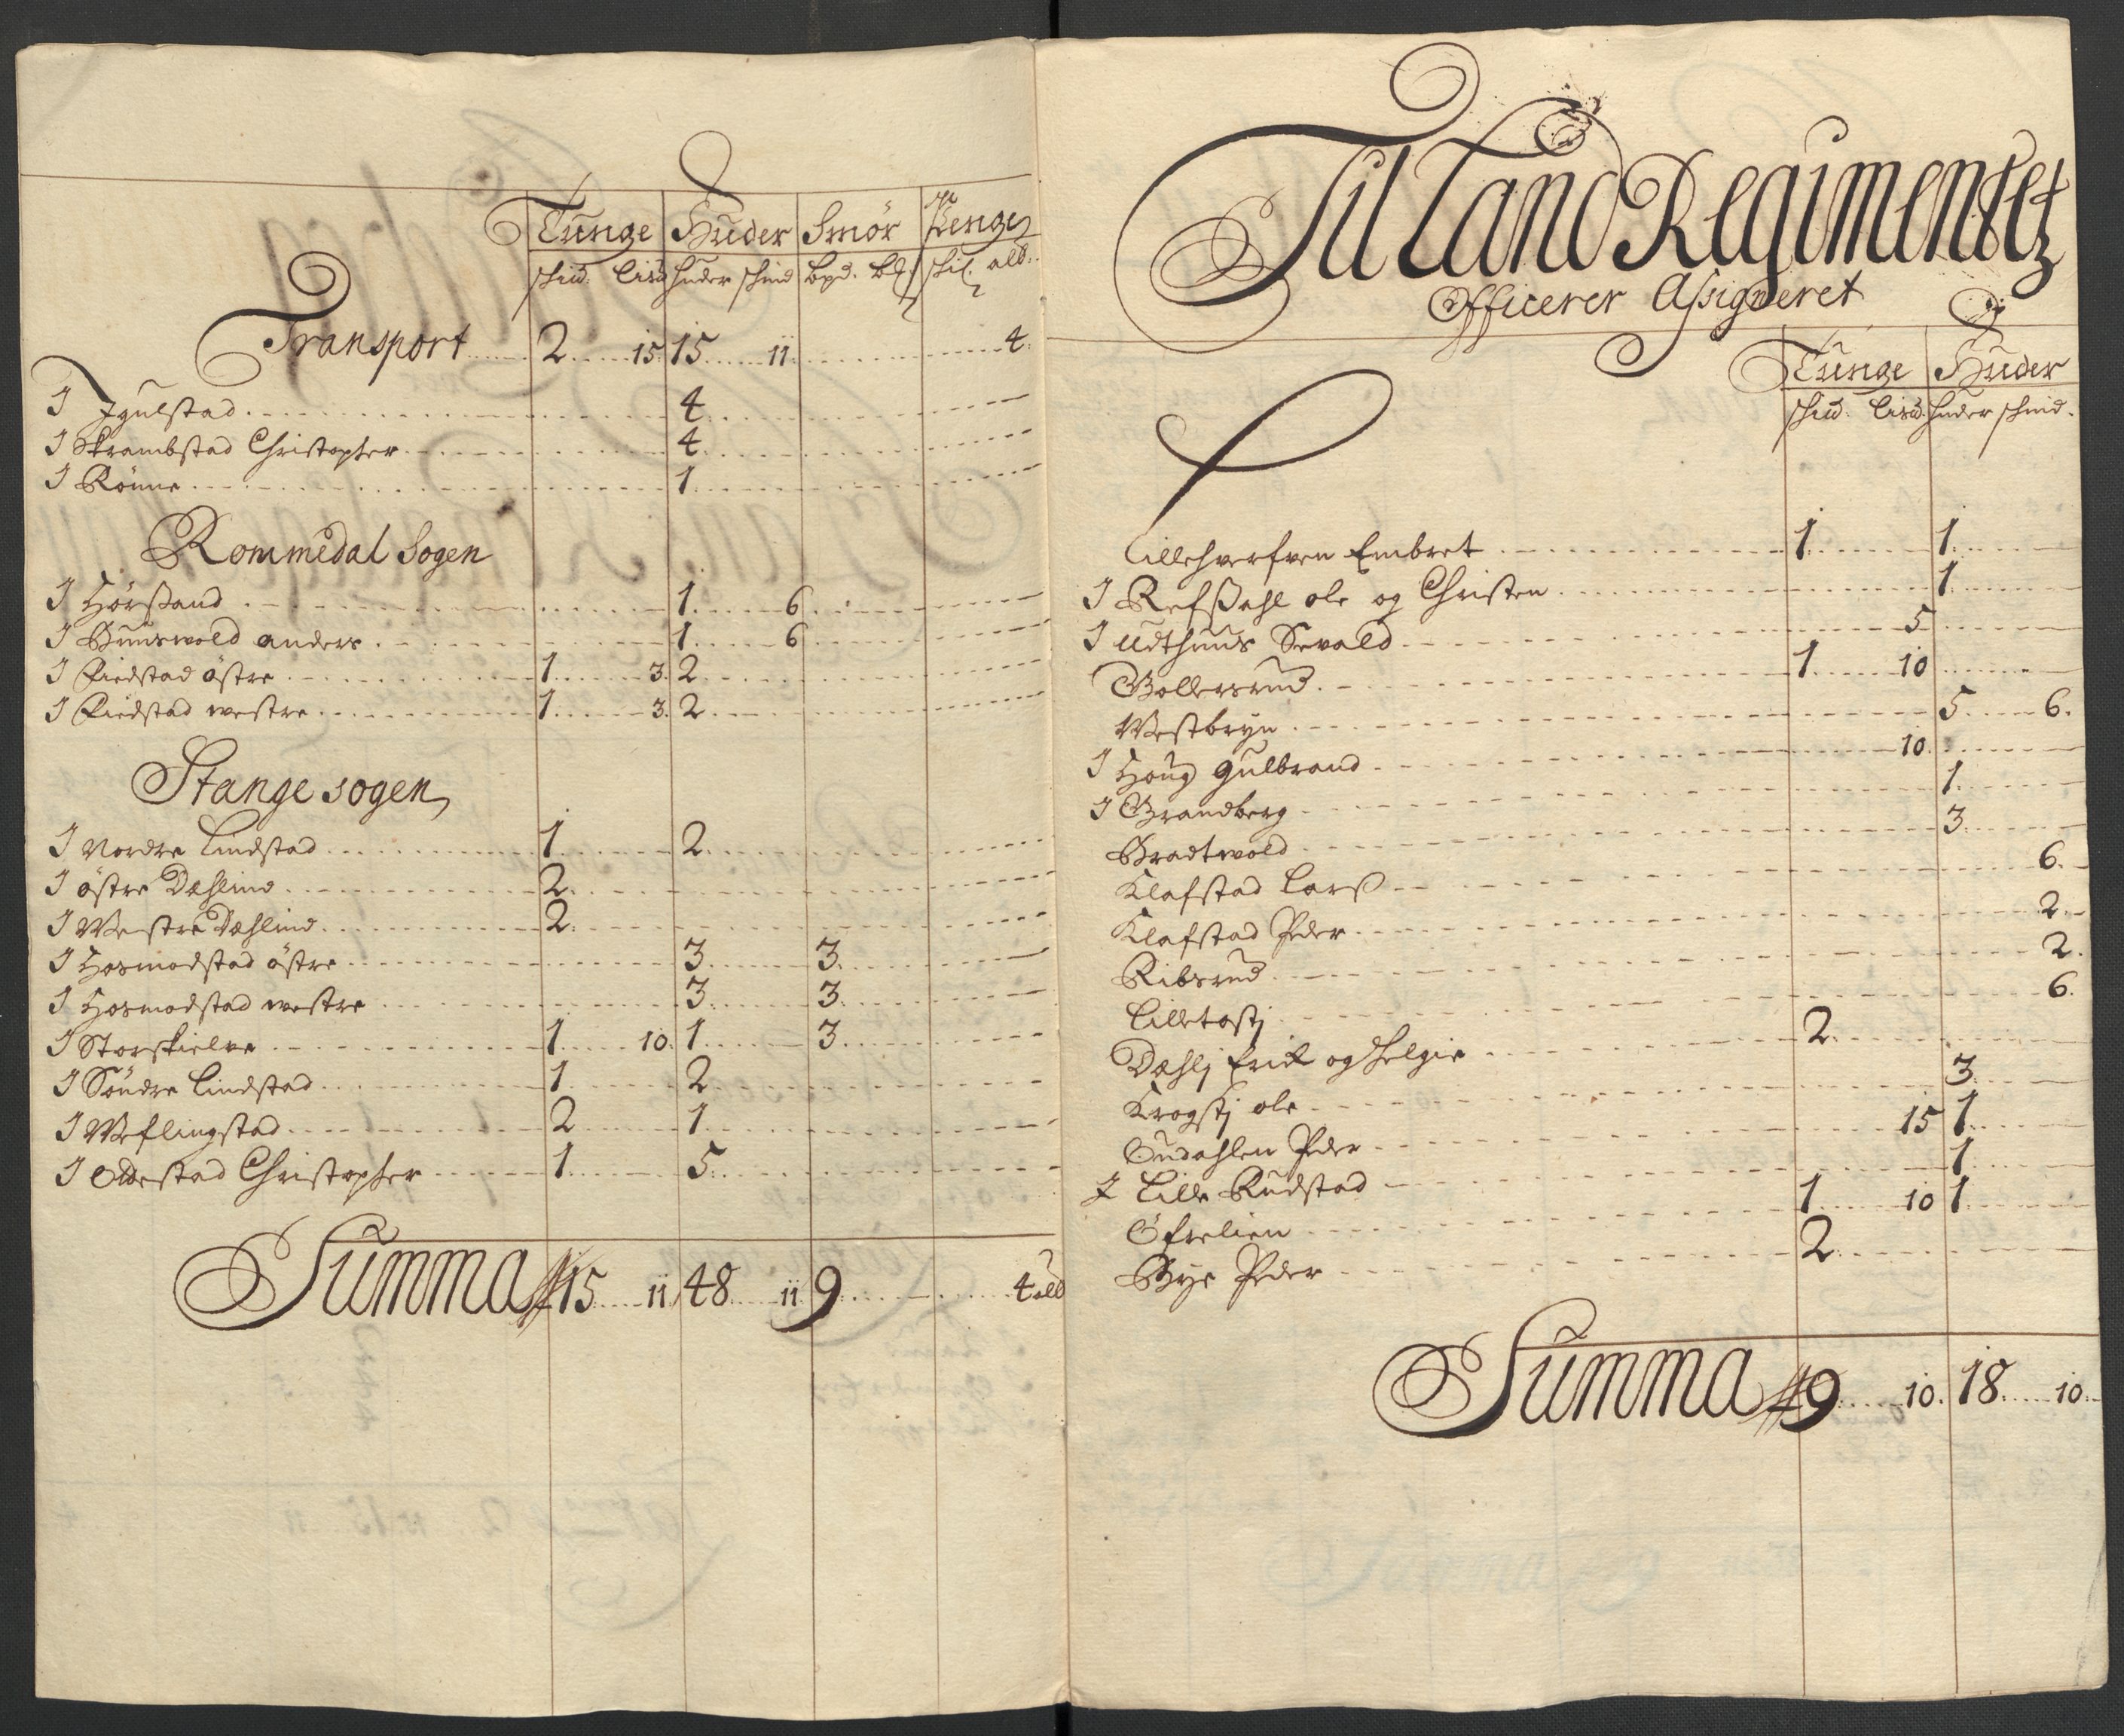 Tunge Huder Smør Penge
skid. Lisd huder skind Bpd. skil. alb.
Transport 2 15 15 11 4
I Igulstad 4
I Skrambstad Christopher 4
I Rönne 1
Rommedal Sogen
I Hörstand 1 6
I Buuswold anders 1 6
I Fiedstad östre 1 3 2
I Fiedstad westre 1 3 2
Stange sogen
I Nordre Lindstad 1 2
I östre Dæhlind 2
I Westre Dæhlind 2
I Hosmodstad östre 3 3
I Hosmodstad westre 3 3
I Storskielue 1 10 1 3
I Söndre Lindstad 1 2
I Weflingstad 2 1
I Oddestad Christopher 1 5
Summa 15 11 48 11 9 4 alb
Til Land Regimentetz
Officerer Assigneret
Tunge Huder
skid. Lisd. huder skind.
Lillehverfven Embret 1 1
I Refsahl ole og Christen 1
I Udthuus Sevald 5
Gollersrud 1 10
Westbryn 5 6
I Houg Gulbrand 10
I Brandberg 1
Bradtwold 3
Klafstad Larss 6
Klafstad Peder 2
Ribsrud 2
Lilletostj 6
Dæhlj Erik og Helgie 2
Krogstj ole 3
Sudahlen Peder 15 1
I Lille Rudstad 1
Öfrelien 1 10 1
Bye Peder 2
Summa 9 10 18 10